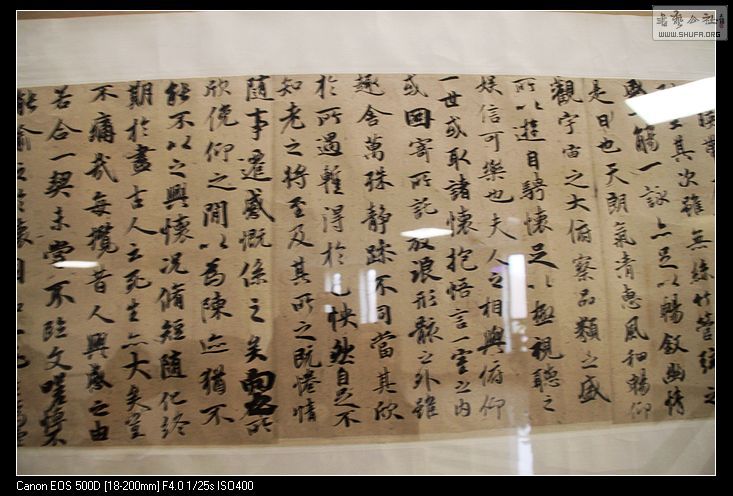 坐其次雖無絲竹管絃之
一觴一詠亦足以暢敘幽情
是日也天朗氣清惠風和暢仰
觀宇宙之大俯察品類之盛
所以遊目騁懷足以極視聽之
娛信可樂也夫人之相與俯仰
一世或取諸懷抱悟言一室之內
或因寄所託放浪形骸之外雖
趣舍萬殊静躁不同當其欣
於所遇暫得於己快然自足不
知老之將至及其所之既惓情
隨事遷感慨係之矣向之所
欣俛仰之閒以為陳迹猶不
能不以之興懷況脩短隨化終
期於盡古人云死生亦大矣豈
不痛哉每攬昔人興感之由
若合一契未嘗不臨文嗟悼不
能喻之於懷固
書藝公社
WWW.SHUFA.ORG
Canon EOS 500D [18-200mm] F4.0 1/25s ISO400